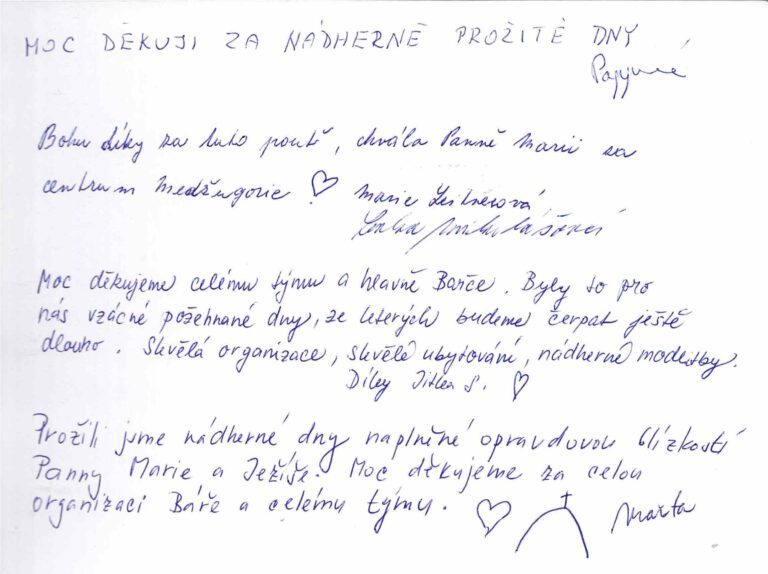 MOC DĚKUJI ZA NÁDHERNĚ PROŽITÉ DNY
Bohu díky za tuto pouť, chvála Panně Marii za
centrum Medžugorie ♡ Marie
Lenka Mikulášová
Moc děkujeme celému týmu a hlavně Barče. Byly to pro
nás vzácné požehnané dny, ze kterých budeme čerpat ještě
dlouho. Skvělá organizace, skvělé ubytování, nádherné modlitby.
Díky Jitka S. ♡
Prožili jsme nádherné dny naplněné opravdovou blízkostí
Panny Marie a Ježíše. Moc děkujeme za celou
organizaci Báře a celému týmu. ♡ Marta